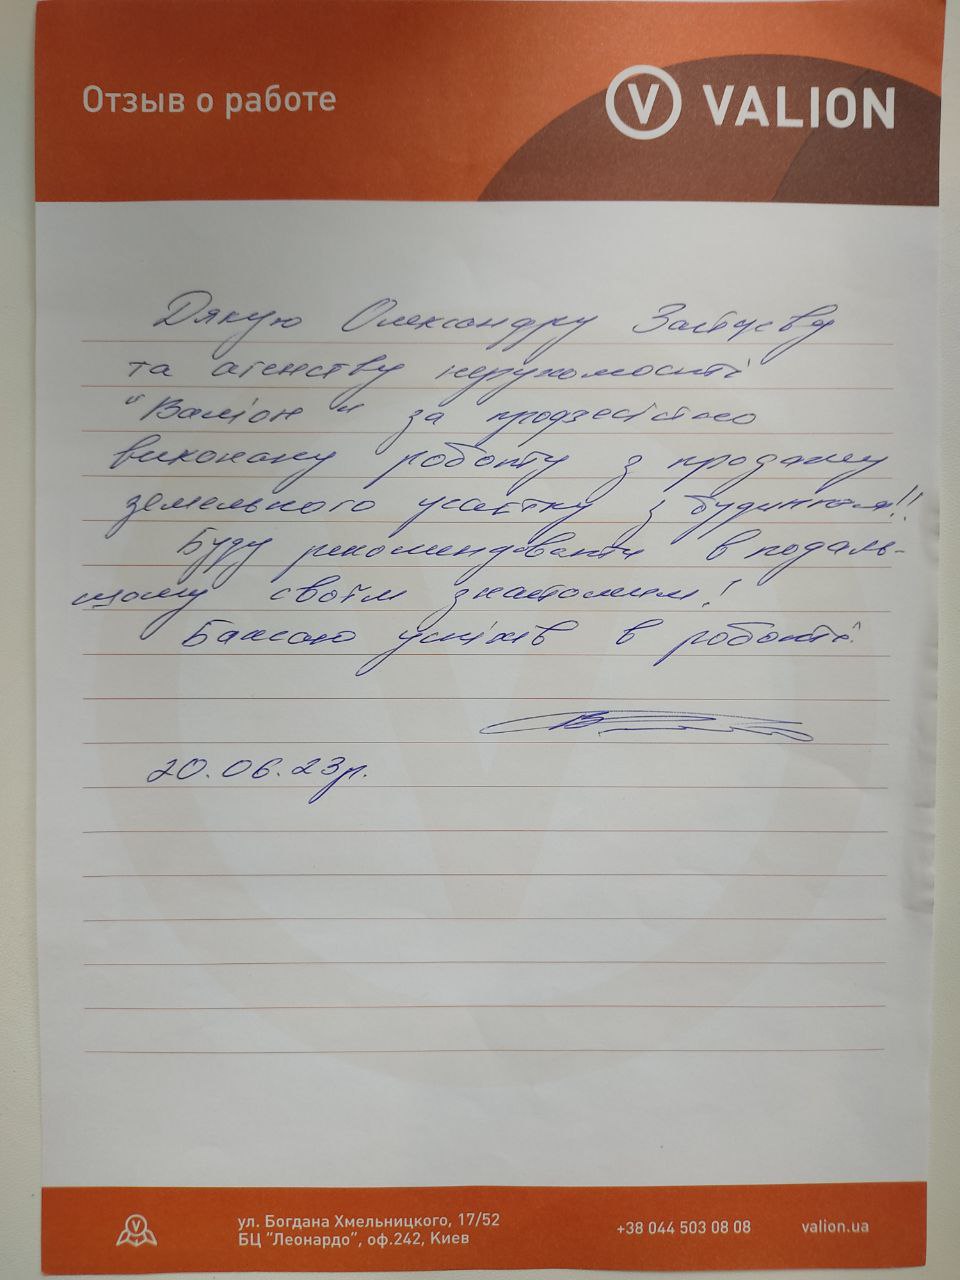 Отзыв о работе
VALION
Дякую Олександру
та агенству нерухомості
"Валіон" за
виконану роботу з продажу
земельного участку з будинком!!
Буду рекомендовати в подаль-
шому своїм знайомим!
Бажаю успіхів в роботі
20.06.23р.
ул. Богдана Хмельницкого, 17/52
БЦ "Леонардо", оф.242, Киев
+38 044 503 08 08
valion.ua